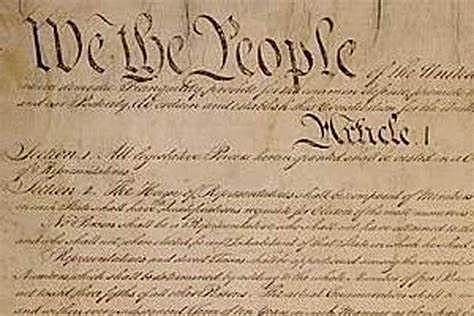 We the People of the United
insure domestic Tranquility, provide for the common defence, promote
and our Posterity, do ordain and establish this Constitution for the
Article. I
Section 1. All legislative Powers herein granted shall be vested in a
of Representatives.
Section 2. The House of Representatives shall be composed of Members
in each State shall have the Qualifications requisite for Electors of the most numerous
No Person shall be a Representative who shall not have attained to
and who shall not, when elected, be an Inhabitant of that State in which he shall
Representatives and direct Taxes shall be apportioned among the several
Numbers, which shall be determined by adding to the whole Number of free
not taxed, three fifths of all other Persons. The actual Enumeration shall be
and within every subsequent Term of ten Years, in such Manner as they shall